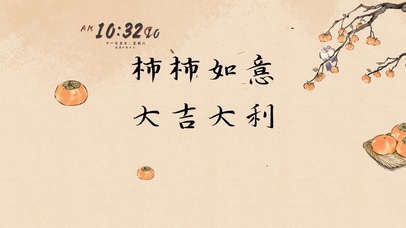 AM 10:32
柿柿如意
大吉大利